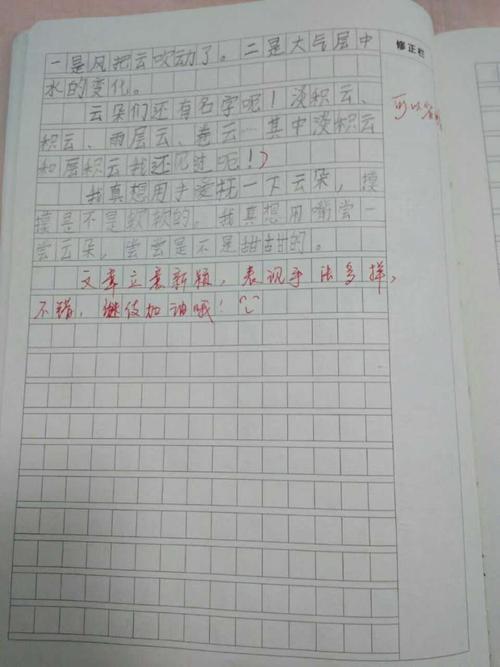 修正栏
一是风把云吹动了。二是大气层中
水的变化。
云朵们还有名字呢！淡积云、
积云、雨层云、卷云…其中淡积云
和层积云我还见过呢！
可以
我真想用手摸一下云朵，摸
摸是不是软软的。我真想用嘴尝一
尝云朵，尝尝是不是甜甜的。
文章立意新颖，表现手法多样，
不错，继续加油哦！